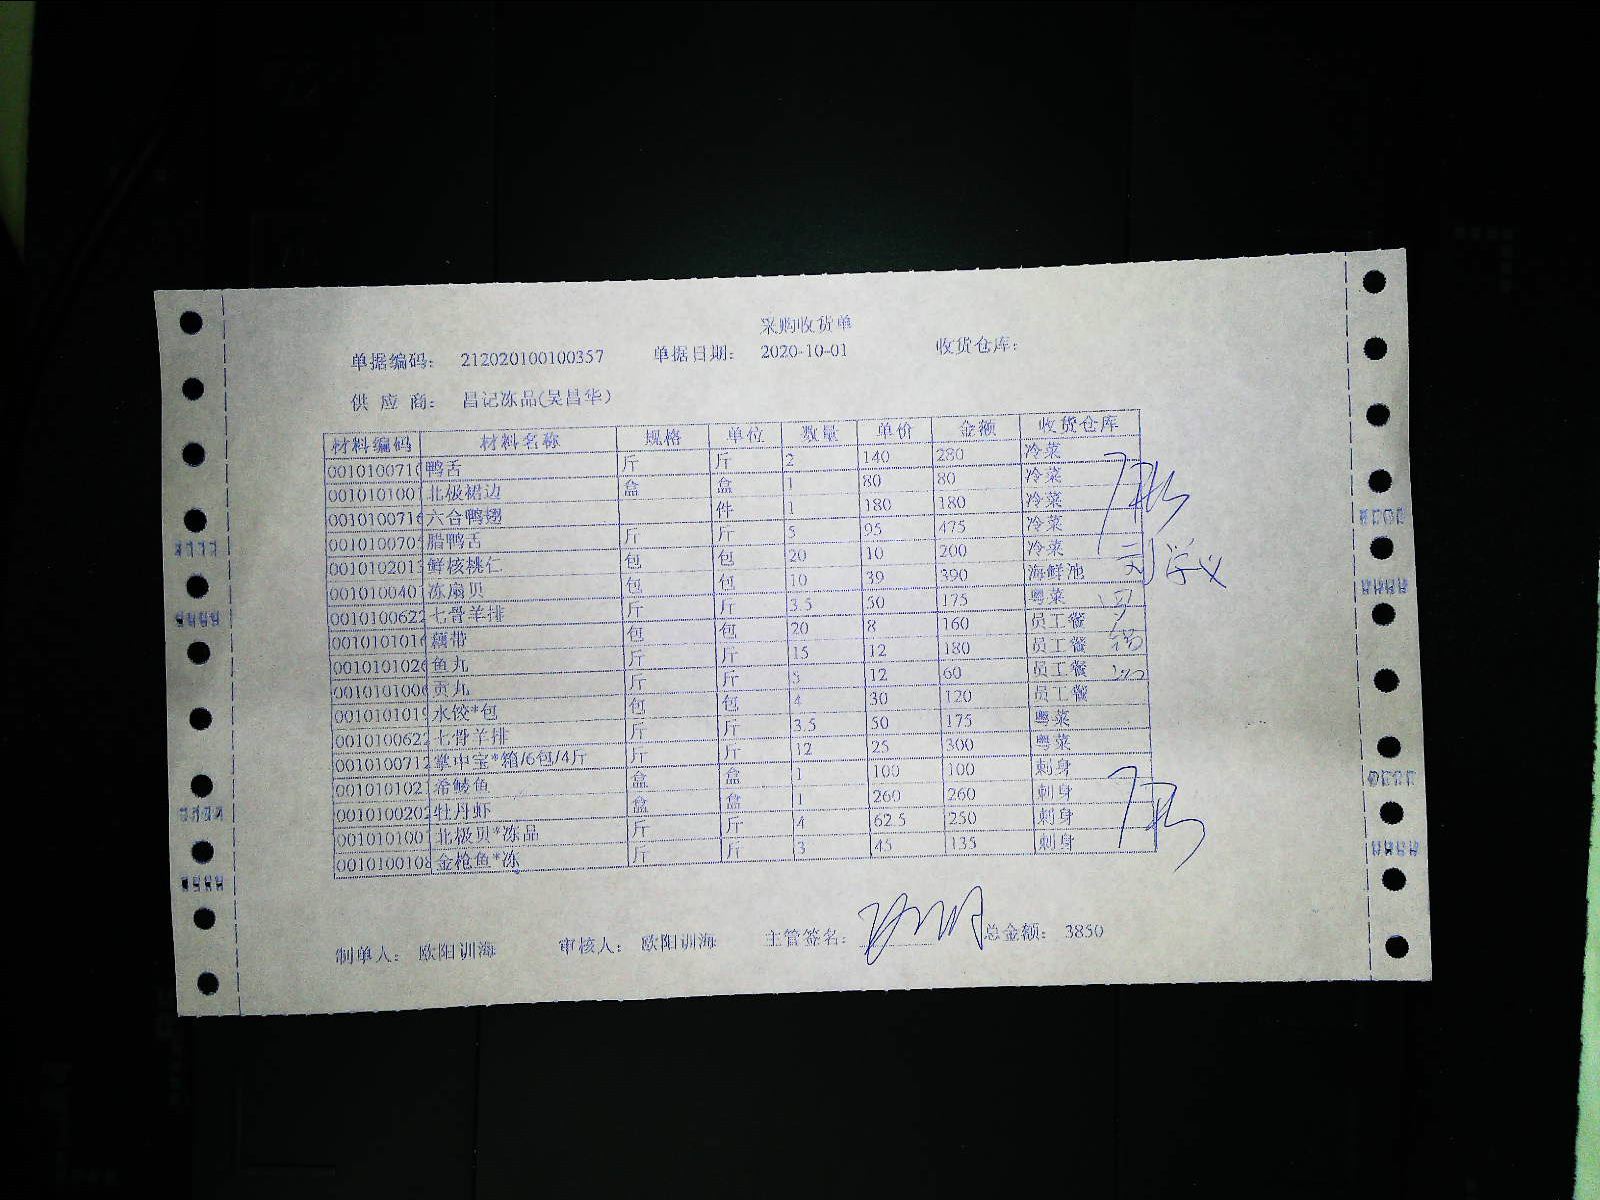 采购收货单
单据编码： 212020100100357 单据日期： 2020-10-01 收货仓库：
供 应 商： 昌记冻品(吴昌华)
材料编码 材料名称 规格 单位 数量 单价 金额 收货仓库
001010071 鸭舌 斤 斤 2 140 280 冷菜
001010100 北极裙边 盒 盒 1 80 80 冷菜
001010071 六合鸭翅 件 1 180 180 冷菜
001010070 腊鸭舌 斤 斤 5 95 475 冷菜
001010201 鲜核桃仁 包 包 20 10 200 冷菜
001010040 冻扇贝 包 包 10 39 390 海鲜池
001010062 七骨羊排 斤 斤 3.5 50 175 粤菜
001010101 藕带 包 包 20 8 160 员工餐
001010102 鱼丸 斤 斤 15 12 180 员工餐
001010100 贡丸 斤 斤 5 12 60 员工餐
001010101 水饺*包 包 包 4 30 120 员工餐
001010062 七骨羊排 斤 斤 3.5 50 175 粤菜
001010071 掌中宝*箱/6包/4斤 斤 斤 12 25 300 粤菜
001010102 希鲮鱼 盒 盒 1 100 100 刺身
001010020 牡丹虾 盒 盒 1 260 260 刺身
001010100 北极贝*冻品 斤 斤 4 62.5 250 刺身
001010010 金枪鱼*冻 斤 斤 3 45 135 刺身
刘学义
制单人： 欧阳训海 审核人： 欧阳训海 主管签名： 总金额： 3850